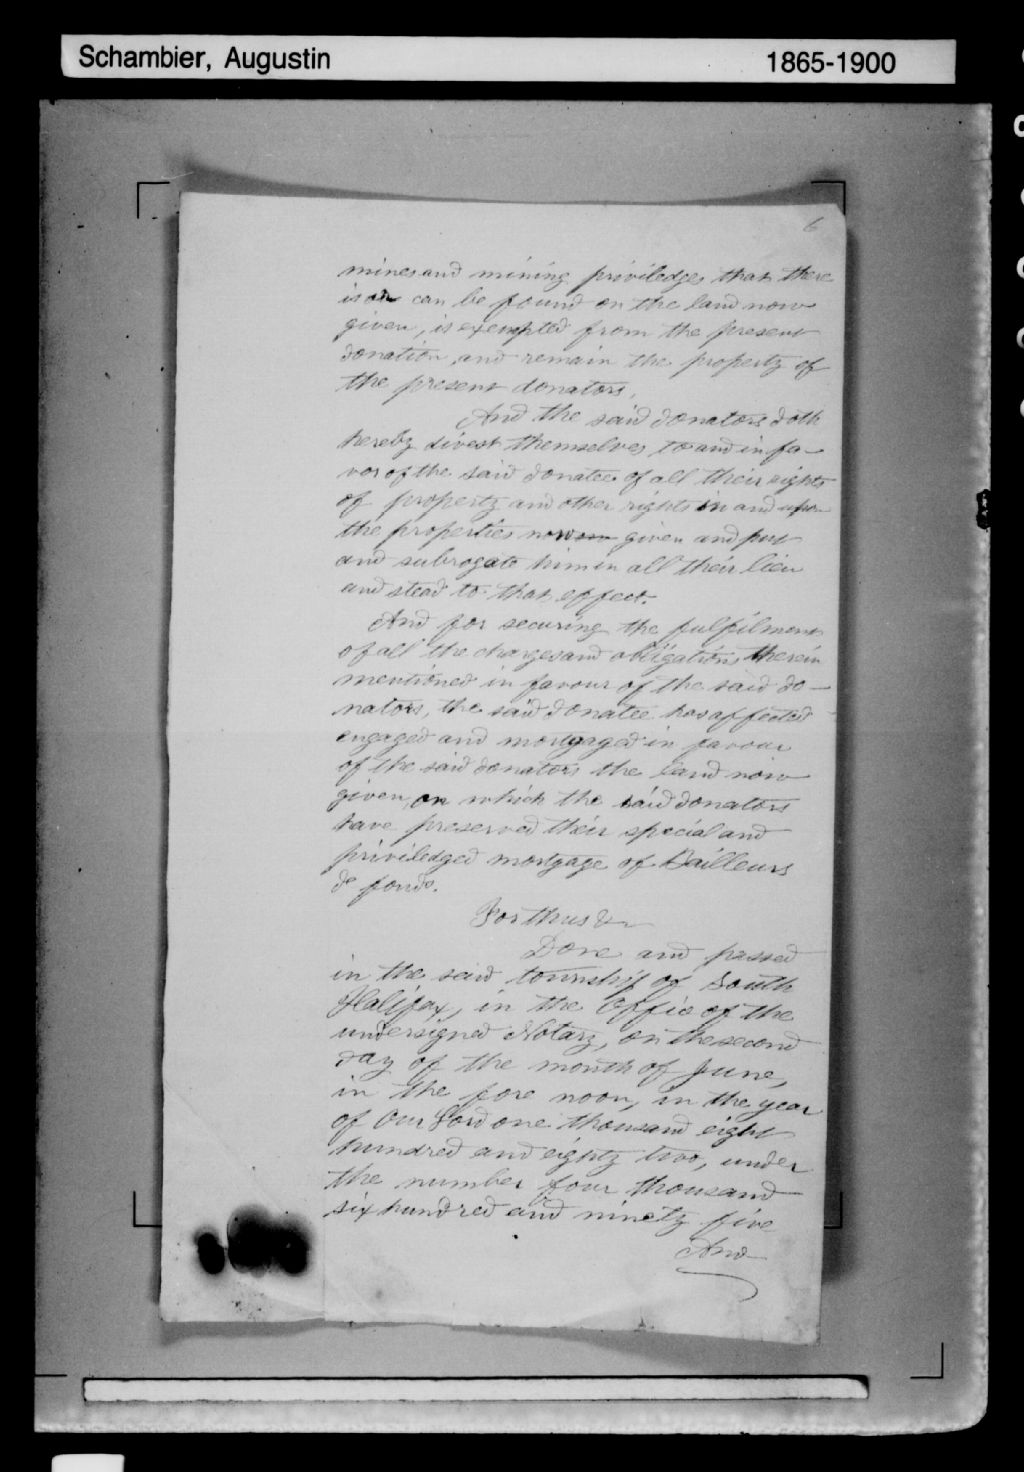 Schambier, Augustin 1865-1900
6
mines and mining priviledges that there
is or can be found on the land now
given, is exempted from the present
donation, and remain the property of
the present donators.
And the said donators doth
hereby divest themselves to and in fa-
vor of the said donatee of all their rights
of property and other rights in and upon
the properties now given and put
and subrogate him in all their lieu
and stead to that effect.
And for securing the fulfilment
of all the charges and obligations therein
mentioned in favour of the said do-
nators, the said donatee has affected
engaged and mortgaged in favour
of the said donators the land now
given, on which the said donators
have preserved their special and
priviledged mortgage of Bailleurs
de fonds.
For thus &c
Done and passed
in the said township of South
Halifax, in the Office of the
undersigned Notary, on the second
day of the month of June,
in the fore noon, in the year
of Our Lord one thousand eight
hundred and eighty two, under
the number four thousand
six hundred and ninety five
And